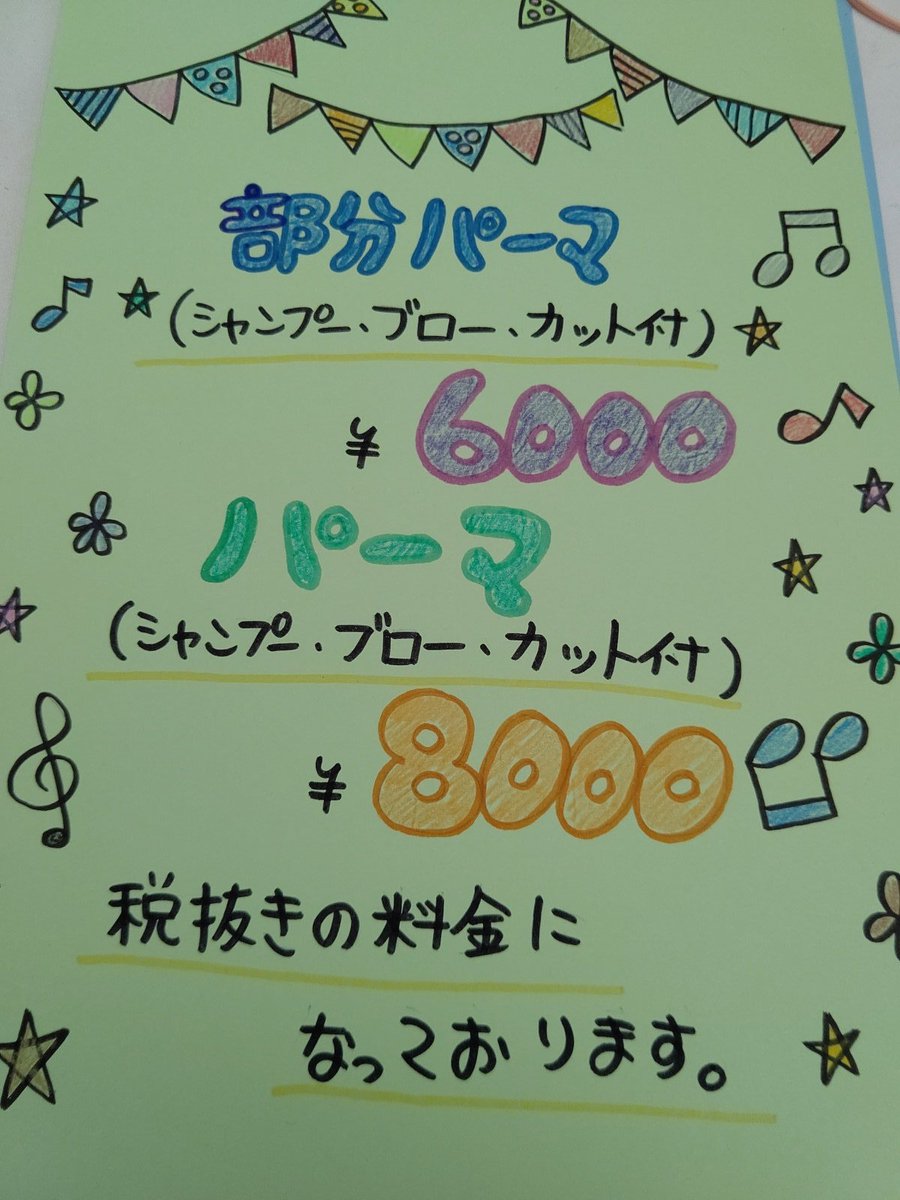 部分パーマ
(シャンプー、ブロー、カット付)
¥6000
パーマ
(シャンプー、ブロー、カット付)
¥8000
税抜きの料金に
なっております。